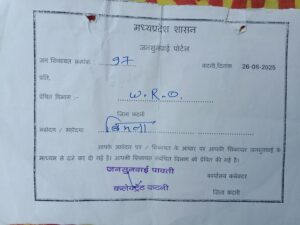 मध्यप्रदेश शासन
जनसुनवाई पोर्टल
जन शिकायत क्रमांक: 97 कटनी,दिनांक 26-08-2025
प्रति,
प्रेषित विभाग :- W.R.O.
जिला कटनी
महोदय / महोदया विमला
आपके आवेदन पर / शिकायत के आधार पर आपकी शिकायत जनसुनवाई के
माध्यम से दर्ज कर दी गई है। आपकी शिकायत संबंधित विभाग को प्रेषित की गई है।
जनसुनवाई पावती
कार्यालय कलेक्टर
कलेक्ट्रेट कटनी
जिला कटनी